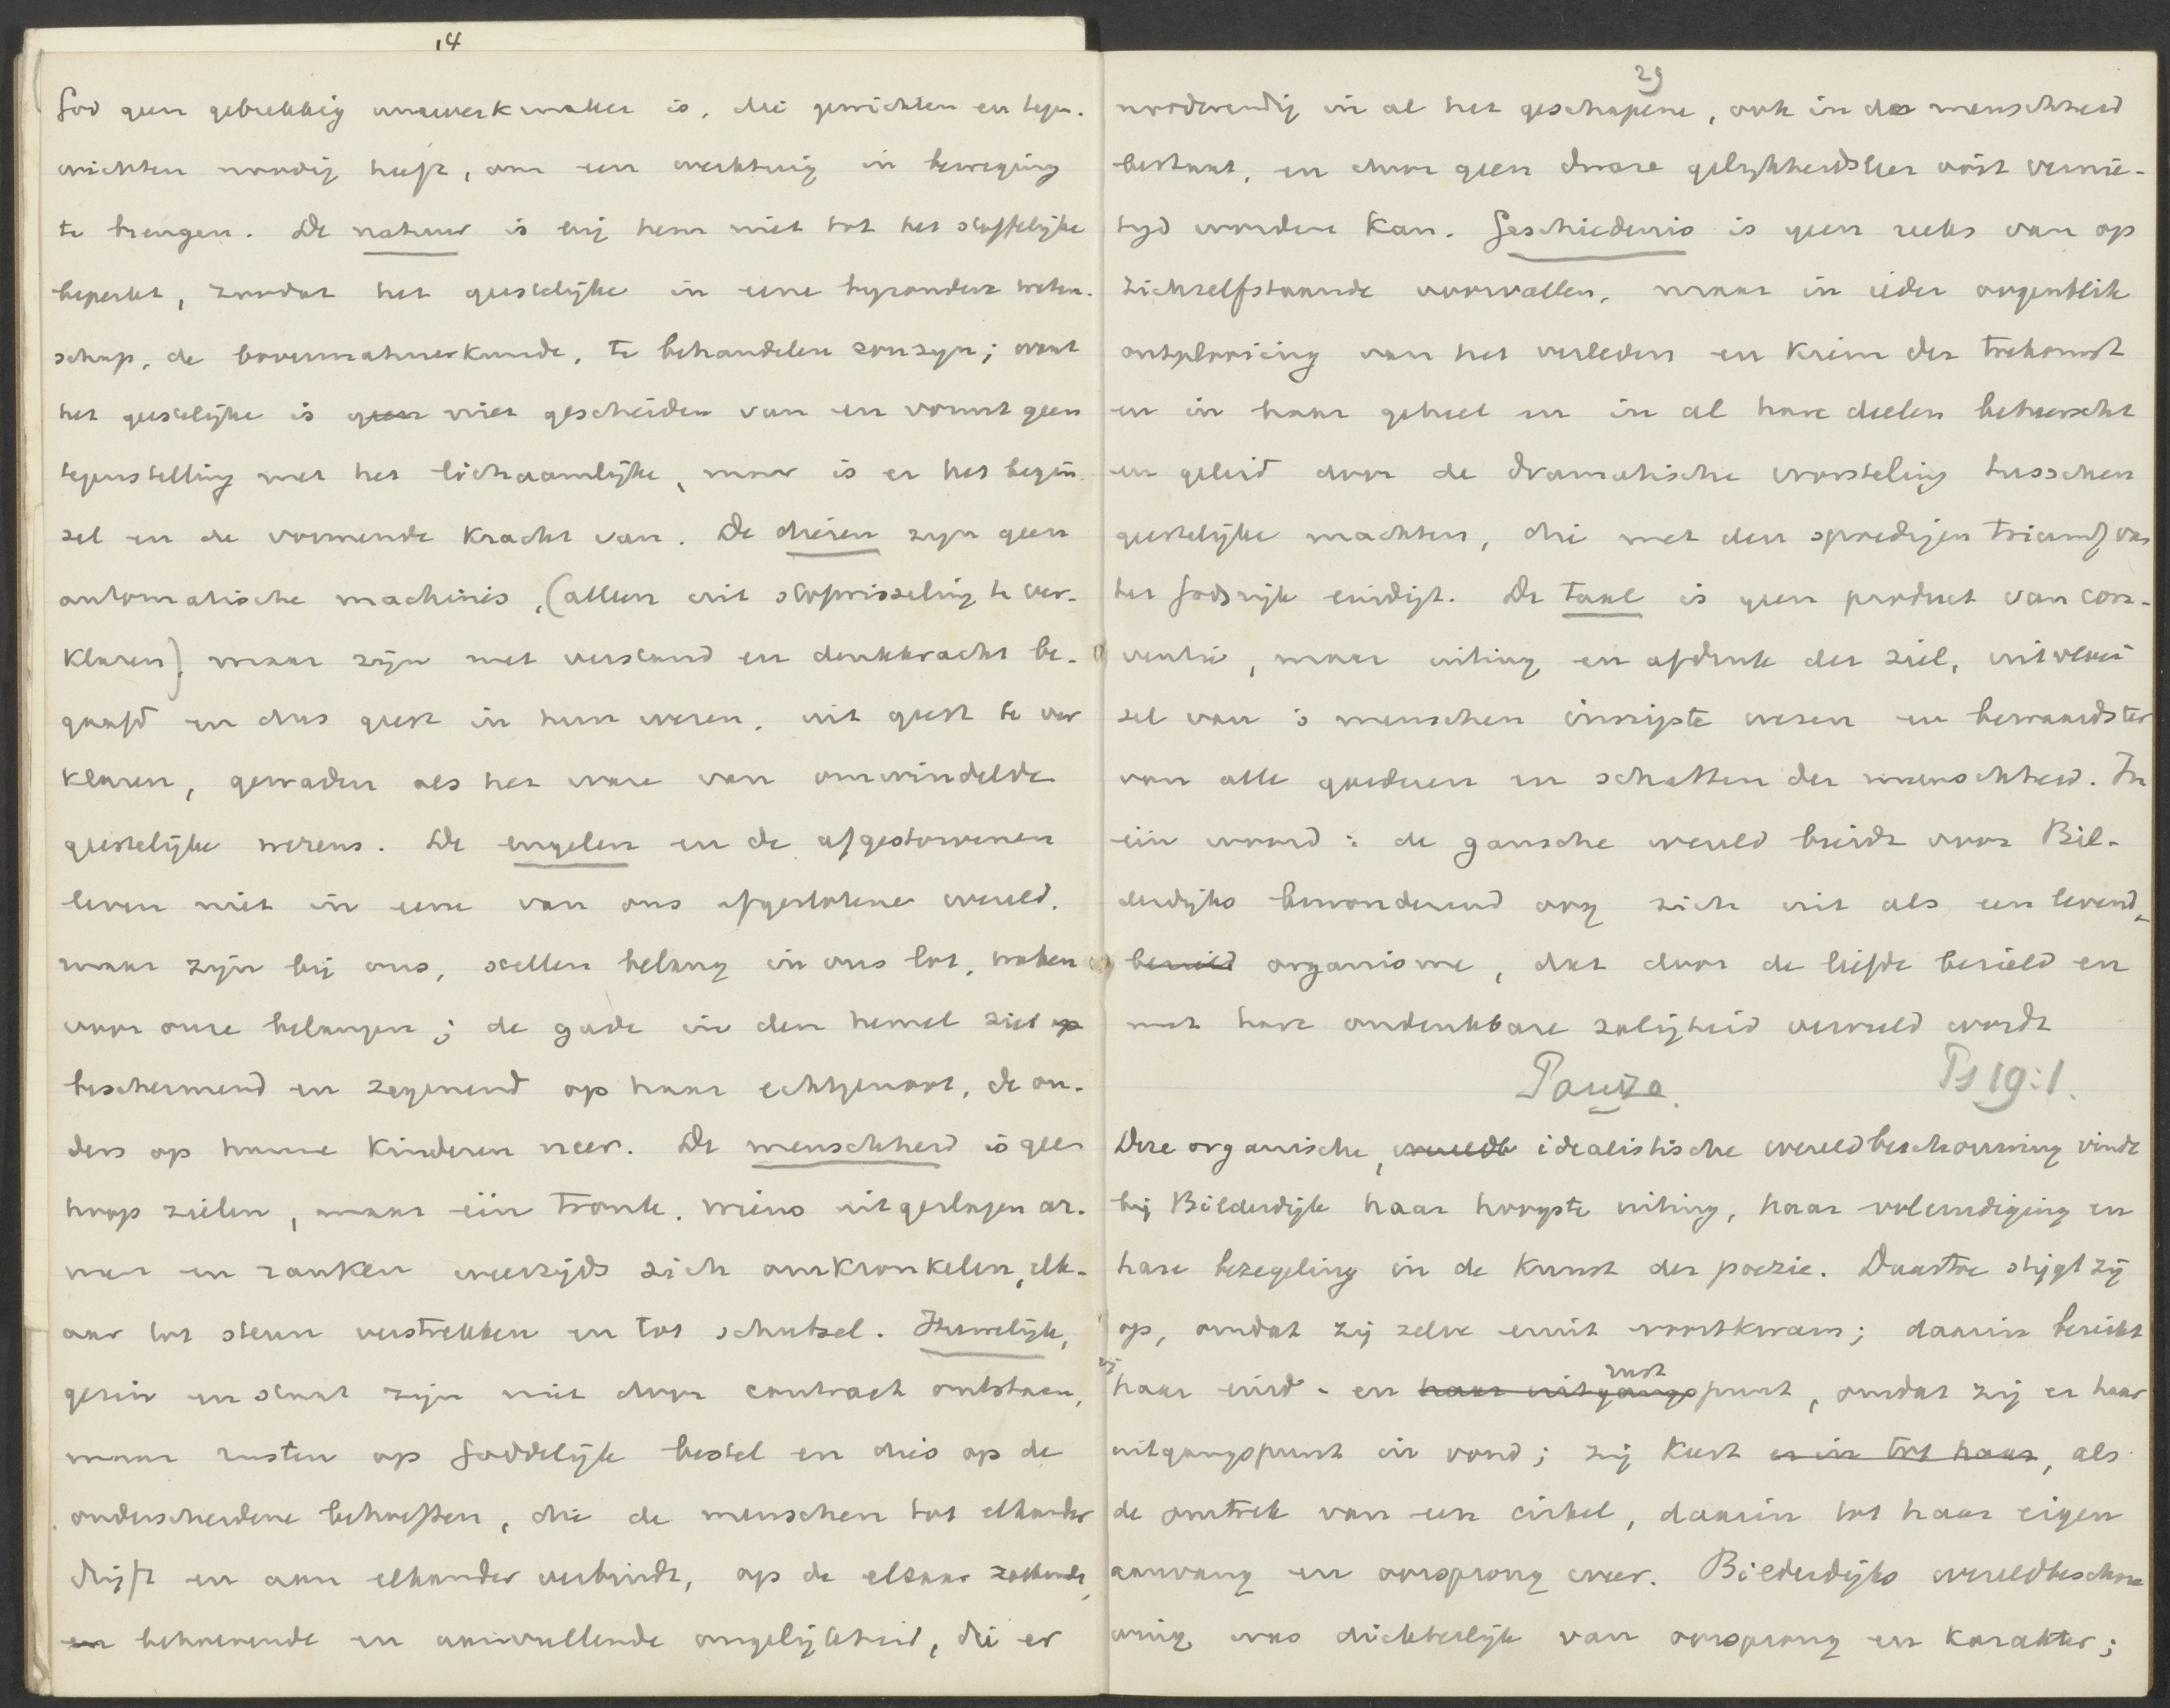 14
God geen gebrekkig uurwerkmaker is, die gewichten en tegen-
wichten noodig heeft, om een werktuig in beweging
te brengen. De natuur is bij hem niet tot het stoffelijke
beperkt, zoodat het geestelijke in eene byzondere weten-
schap, de bovennatuurkunde, te behandelen zou zyn; want
het geestelijke is geen niet gescheiden van en vormt geen
tegenstelling met het lichaamlijke, maar is er het begin-
sel en de vormende kracht van. De dieren zyn geen
automatische machines, (alleen uit stofwisseling te ver-
klaren), maar zijn met verstand en denkkracht be-
gaafd en dus geest in hun wezen, uit geest te ver
klaren, gewaden als het ware van omwindelde
geestelijke wezens. De engelen en de afgestorvenen
leven niet in eene van ons afgeslotene wereld,
maar zijn bij ons, stellen belang in ons lot, waken
voor onze belangen; de gade in den hemel ziet op
beschermend en zegenend op haar echtgenoot, de ou-
ders op hunne kinderen neer. De menschheid is geen
hoop zielen, maar één tronk, wiens uitgeslagen ar-
men en ranken weerzijds zich omkronkelen, elk-
aar tot steun verstrekken en tot schutsel. Huwelijk,
gezin en staat zijn niet door contract ontstaan,
maar rusten op Goddelijk bestel en dies op de
onderscheidene behoeften, die de menschen tot elkander
drijft en aan elkander verbindt, op de elkaar zoekende,
en behoevende en aanvullende ongelijkheid, die er
29
noodwendig in al het geschapene, ook in de menschheid
bestaat, en door geen dwaze gelijkheidsleer ooit vernie-
tyd worden kan. Geschiedenis is geen reeks van op
zichzelfstaande voorvallen, maar in ieder oogenblik
ontplooiing van het verleden en kiem der toekomst
en in haar geheel en in al hare deelen beheerscht
en geleid door de dramatische worsteling tusschen
geestelijke machten, die met den spoedigen triumf van
het Godsrijk eindigt. De taal is geen product van con-
ventie, maar uiting en afdruk der ziel, uitvloei
sel van 's menschen innigste wezen en bewaardster
van alle goederen en schatten der menschheid. In
één woord: de gansche wereld breidt voor Bil-
derdijks bewonderend oog zich uit als een levend,
bezield organisme, dat door de liefde bezield en
met hare ondenkbare zaligheid vervuld wordt
Pauze. Ps 19:1.
Deze organische, wereldb idealistische wereldbeschouwing vindt
bij Bilderdijk haar hoogste uiting, haar voleindiging en
hare bezegeling in de kunst der poezie. Daartoe stijgt zij
op, omdat zij zelve eruit voortkwam; daarin bereikt
zij haar eind- en haar uitgangspunt rust, omdat zij er haar
uitgangspunt in vond; zij keert er in tot haar, als
de omtrek van een cirkel, daarin tot haar eigen
aanvang en oorsprong weer. Bilderdijks wereldbeschou
wing was dichterlijk van oorsprong en karakter;